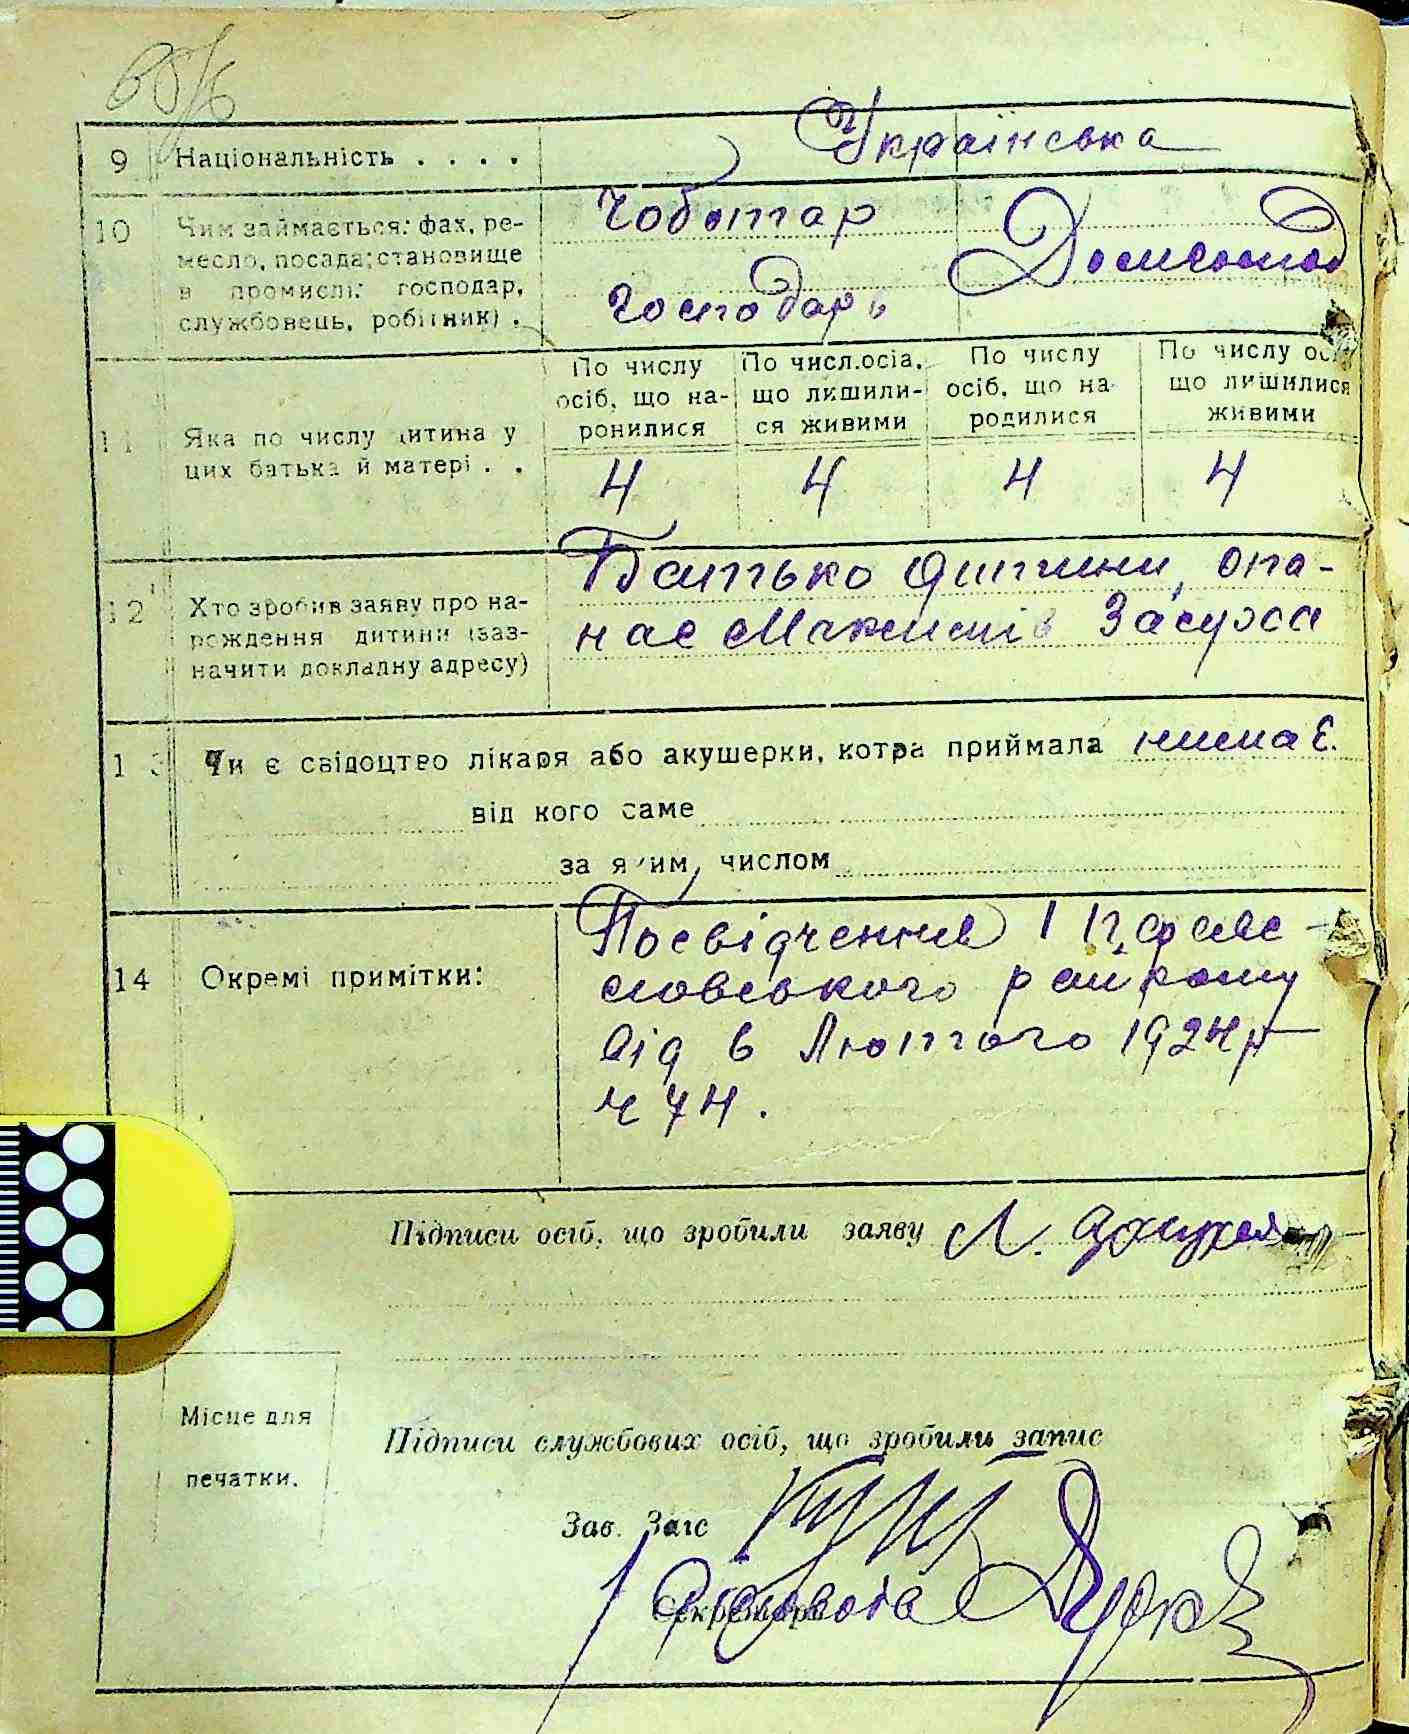 9 Національність . . . . Українська
10 Чим займається: фах, ре-
месло, посада; становище
в промислі: господар,
службовець, робітник) .
Чоботар
господарь
Домогосп
11 Яка по числу дитина у
цих батька й матері . .
По числу
осіб, що на-
ронилися
По числ.осіа,
що лишили-
ся живими
По числу
осіб, що на-
родилися
По числу осі
що лишилися
живими
4 4 4 4
12 Хто зробив заяву про на-
рождення дитини (заз-
начити докладну адресу)
Батько дитини, Опа-
нас Максимів
13 Чи є свідоцтво лікаря або акушерки, котра приймала нима є.
від кого саме
за яким числом
14 Окремі примітки:
Посвідчення І
райкому
від 6 Лютого 1924р
ч 74.
Підписи осіб, що зробили заяву
Місце для
печатки.
Підписи службових осіб, що зробили запис
Зав. Загс
Секретарь